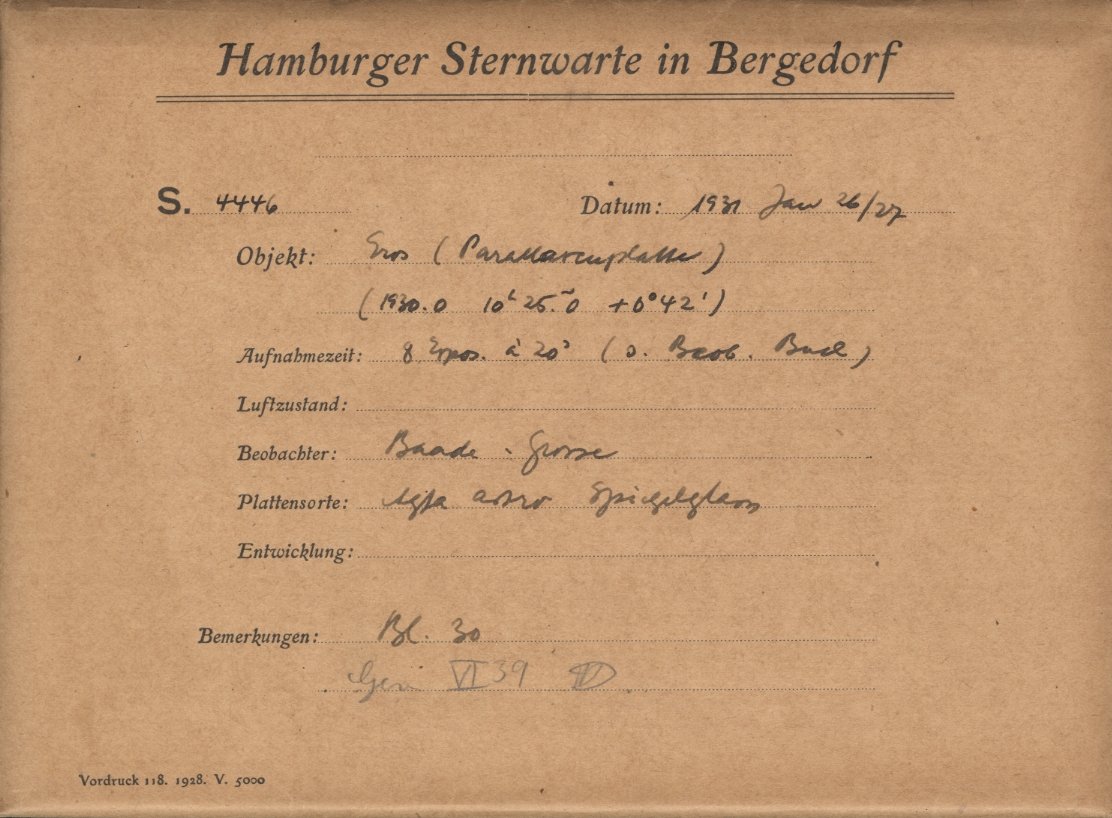 Hamburger Sternwarte in Bergedorf
S. 4446 Datum: 1931 Jan 26/27
Objekt: Eros (Parallaxenplatte)
(1930.0 10h 25.m0 +0°42')
Aufnahmezeit: 8 Expos. à 20s (s. Beob. Buch)
Luftzustand:
Beobachter: Baade - Grosse
Plattensorte: Agfa astro Spiegelglas
Entwicklung:
Bemerkungen: Bl. 30
Gem VI 39
Vordruck 118. 1928. V. 5000